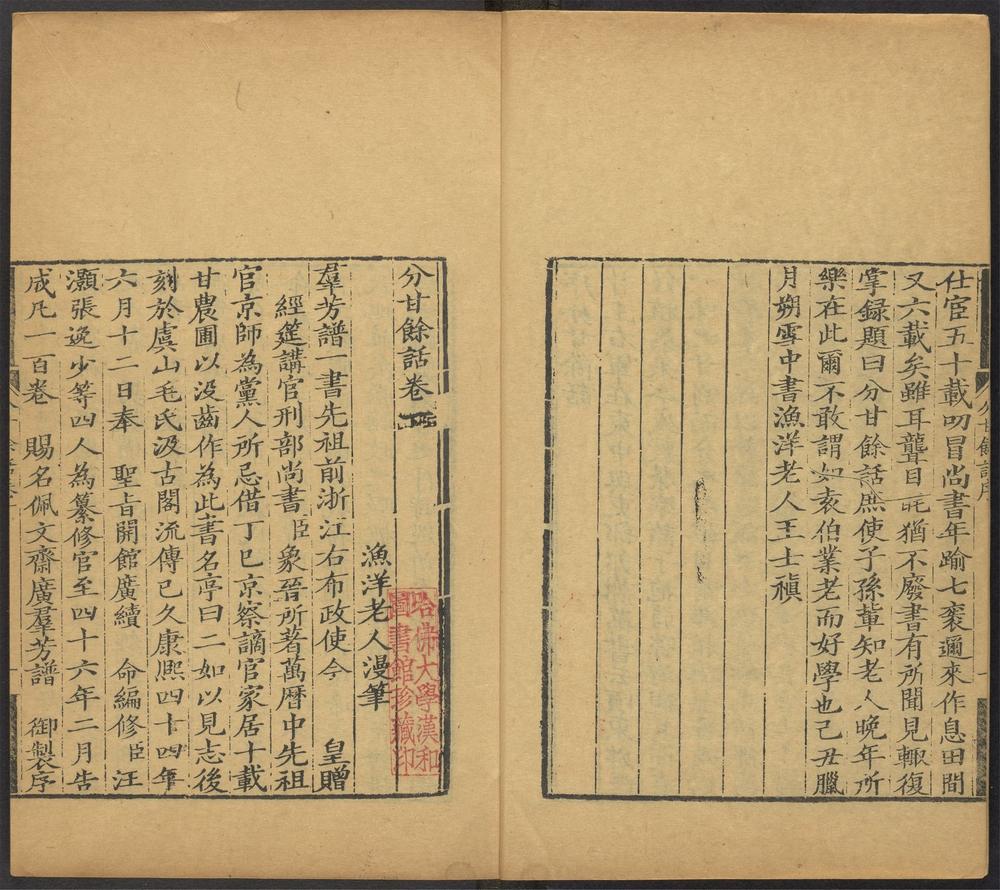 仕宦五十載叨冒尚書年踰七袠邇來作息田間
又六載矣雖耳聾目眊猶不廢書有所聞見輙復
掌録題曰分甘餘話庶使子孫輩知老人晚年所
樂在此爾不敢謂如袁伯業老而好學也己丑臘
月朔雪中書漁洋老人王士禛
分甘餘話序
分甘餘話卷
漁洋老人漫筆
羣芳譜一書先祖前浙江右布政使今 皇贈
經筵講官刑部尚書臣象晉所著萬曆中先祖
官京師為黨人所忌借丁巳京察謫官家居十載
甘農圃以没齒作為此書名亭曰二如以見志後
刻於虞山毛氏汲古閣流傳已久康熙四十四年
六月十二日奉 聖旨開館廣續 命編修臣汪
灝張逸少等四人為纂修官至四十六年二月告
成凡一百卷 賜名佩文齋廣羣芳譜 御製序
哈佛大學漢和
圖書館珍藏印